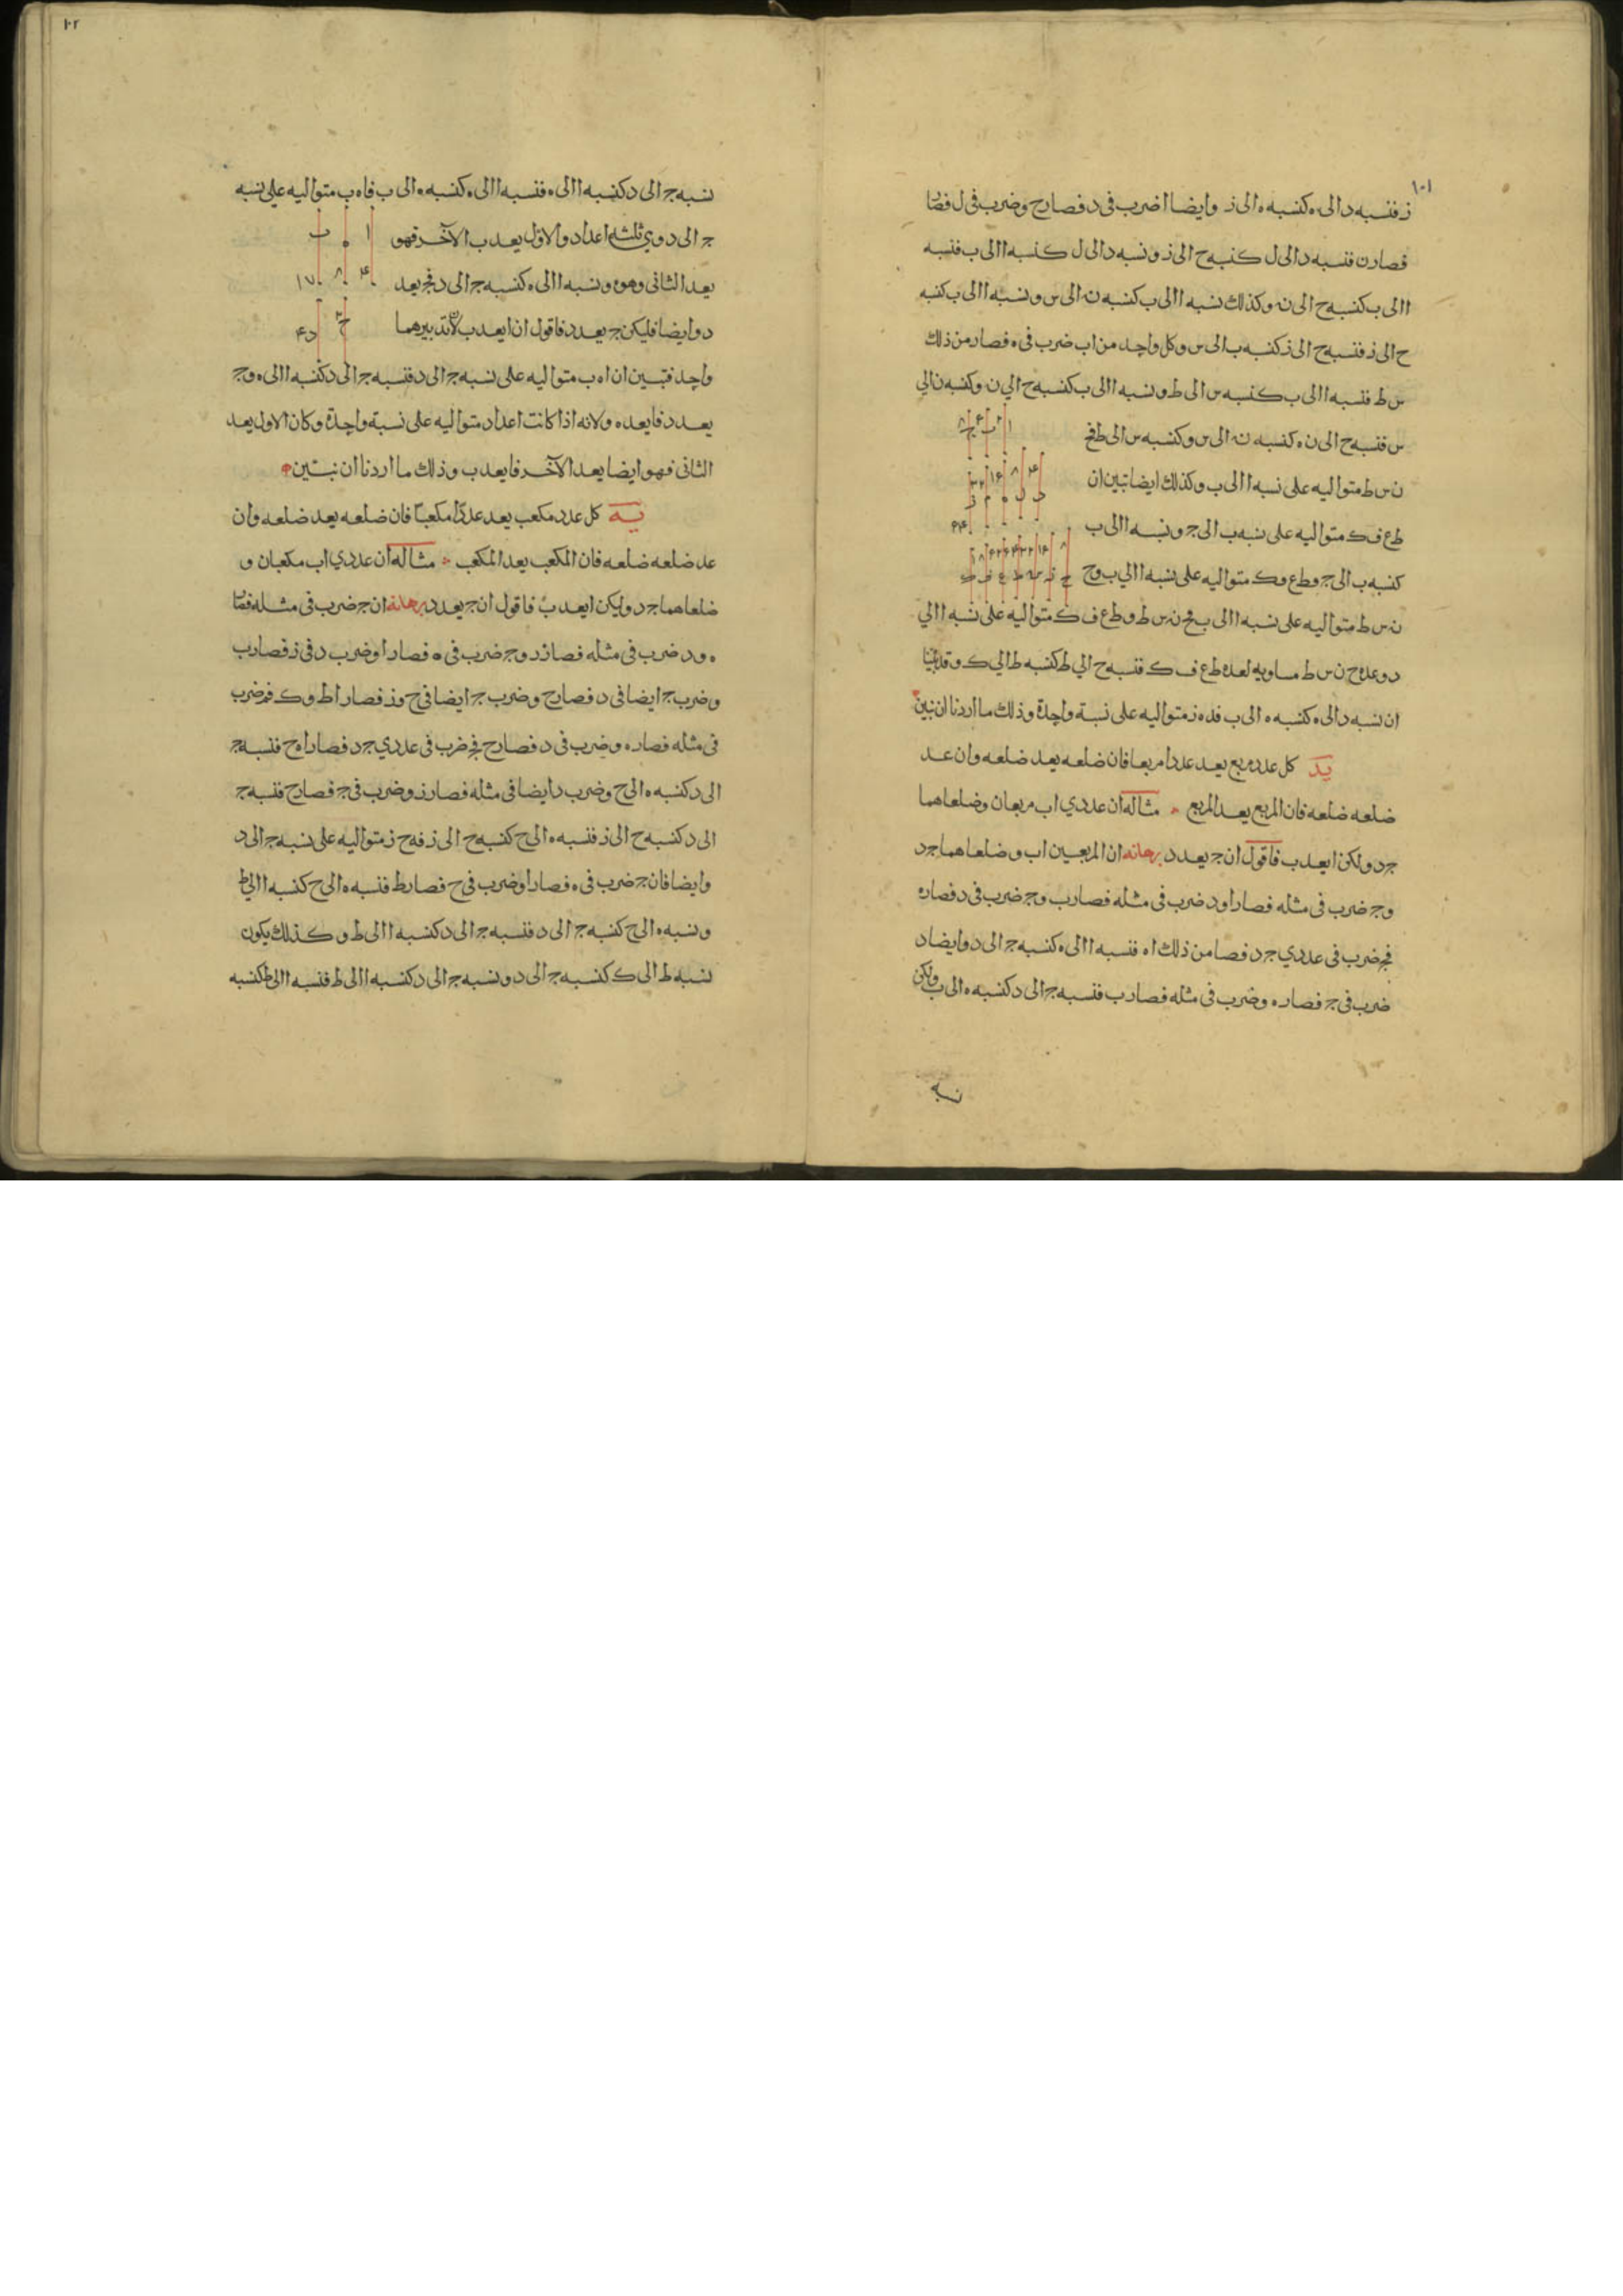 ١٠١
ز فنسبه د الى ه كنسبه ه الى ز وايضا ا ضرب فى د فصار ح وضرب فى ل فصا
فصار ن فنسبه د الى ل كنسبه ح الى ز ونسبه د الى ل كنسبه ا الى ب فنسبه
ا الى ب كنسبه ح الى ن وكذلك نسبه ا الى ب كنسبه ن الى س ونسبه ا الى ب كنسبه
ح الى ز فنسبه ح الى ز كنسبه ب الى س وكل واحد من ا ب ضرب فى ه فصار من ذلك
س ط فنسبه ا الى ب كنسبه س الى ط ونسبه ا الى ب كنسبه ح الى ن وكنسبه ن الى
س فنسبه ح الى ن ه كنسبه ن الى س وكنسبه س الى ط فح
ن س ط متواليه على نسبه ا الى ب وكذلك ايضا تبين ان
ط ع ف ك متواليه على نسبه ب الى ج ونسبه ا الى ب
كنسبه ب الى ج وط ع ف ك متواليه على نسبه ا الى ب وح
ن س ط متواليه على نسبه ا الى ب فح ن س ط وط ع ف ك متواليه على نسبه ا الى
د وعده ح ن س ط مساويه لعده ط ع ف ك فنسبه ح الى ط كنسبه ط الى ك وقد بينا
ان نسبه د الى ه كنسبه ه الى ب فد ه ز متواليه على نسبة واحدة وذلك ما اردنا ان نبين
يد كل عدد مربع يعد عددا مربعا فان ضلعه يعد ضلعه وان عد
ضلعه ضلعه فان المربع يعد المربع مثاله ان عددي ا ب مربعان وضلعاهما
ج د ولكن ا يعد ب فاقول ان ج يعد د برهانه ان المربعين ا ب وضلعاهما ج د
وج ضرب فى مثله فصار ا ود ضرب فى مثله فصار ب وج ضرب فى د فصار ه
فج ضرب فى عددي ج د فصار من ذلك ا ه فنسبه ا الى ه كنسبه ج الى د وايضا د
ضرب فى ج فصار ه وضرب فى مثله فصار ب فنسبه ج الى د كنسبه ه الى ب ولكن
نسبه
١٠٢
نسبه ج الى د كنسبه ا الى ه فنسبه ا الى ه كنسبه ه الى ب فا ه ب متواليه على نسبه
ج الى د وهي ثلثه اعداد والاول يعد ب الآخر فهو
يعد الثانى وهو ه ونسبه ا الى ه كنسبه ج الى د فج يعد
د وايضا فليكن ج يعد د فاقول ان ا يعد ب لان تدبيرهما
واحد فتبين ان ا ه ب متواليه على نسبه ج الى د فنسبه ج الى د كنسبه ا الى ه وج
يعد د فا يعد ه ولانه اذا كانت اعداد متواليه على نسبة واحدة وكان الاول يعد
الثانى فهو ايضا يعد الآخر فا يعد ب وذلك ما اردنا ان نبين
يه كل عدد مكعب يعد عددا مكعبا فان ضلعه يعد ضلعه وان
عد ضلعه ضلعه فان المكعب يعد المكعب مثاله ان عددي ا ب مكعبان و
ضلعاهما ج د وليكن ا يعد ب فاقول ان ج يعد د برهانه ان ج ضرب فى مثله فصار
ه ود ضرب فى مثله فصار ز وج ضرب فى ه فصار ا وضرب د فى ز فصار ب
وضرب ج ايضا فى د فصار ح وضرب ج ايضا فى ح وز فصار ا ط وك فج ضرب
فى مثله فصار ه وضرب فى د فصار ح فج ضرب فى عددي ج د فصار ا ه ح فنسبه ج
الى د كنسبه ه الى ح وضرب د ايضا فى مثله فصار ز وضرب فى ج فصار ح فنسبه ج
الى د كنسبه ح الى ز فنسبه ه الى ح كنسبه ح الى ز فه ح ز متواليه على نسبه ج الى د
وايضا فان ج ضرب فى ه فصار ا وضرب فى ح فصار ط فنسبه ه الى ح كنسبه ا الى ط
ونسبه ه الى ح كنسبه ج الى د فنسبه ج الى د كنسبه ا الى ط وكذلك يكون
نسبه ط الى ك كنسبه ج الى د ونسبه ج الى د كنسبه ا الى ط فنسبه ا الى ط كنسبه